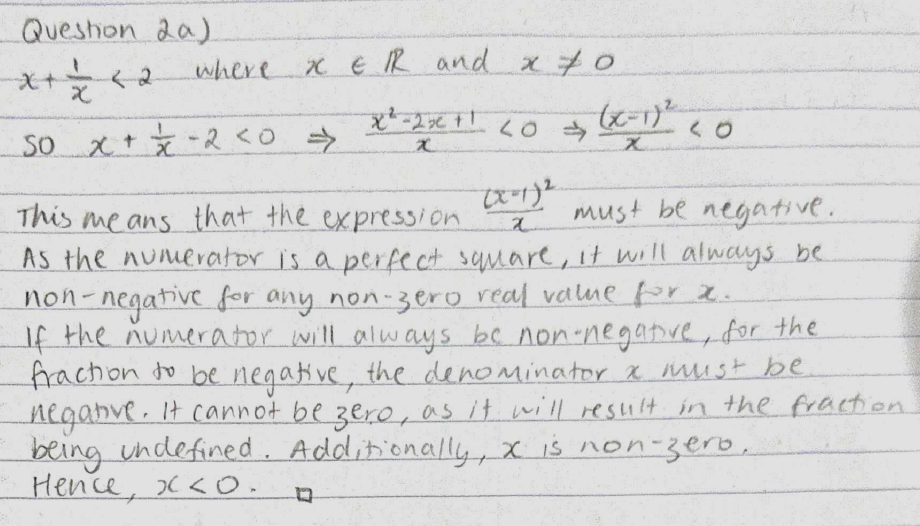 Question 2a)
x + 1/x < 2 where x ∈ ℝ and x ≠ 0
So x + 1/x - 2 < 0 ⇒ (x² - 2x + 1)/x < 0 ⇒ (x-1)²/x < 0
This means that the expression (x-1)²/x must be negative.
As the numerator is a perfect square, it will always be
non-negative for any non-zero real value for x.
If the numerator will always be non-negative, for the
fraction to be negative, the denominator x must be
negative. It cannot be zero, as it will result in the fraction
being undefined. Additionally, x is non-zero.
Hence, x < 0. □